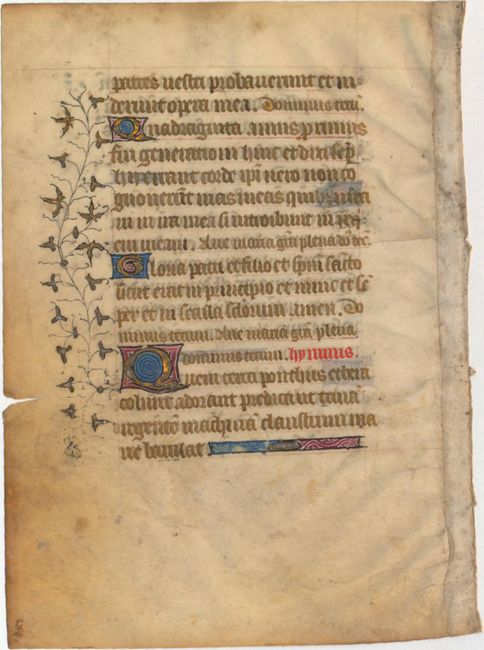 patres vestri probaverunt et vi
derunt opera mea. Dominus tecū.
Quadraginta annis proximus
fui generationi huic et dixi sēp
hii errant corde ipi vero non co
gnoverūt vias meas quibz iuravi
in ira mea si introibunt in req̄
em meam. Ave maria grā plena dn̄s tec̄.
Gloria patri et filio et spiritui sācto
sicut erat in principio et nunc et sē
per et in secula sēlorum amen. Do
minus tecum. Ave maria grā plena
dominus tecum. hymnus.
Quem terra ponthus ethera
colunt adorant predicāt trinā
regentē machinā claustrum ma
rie baiulat